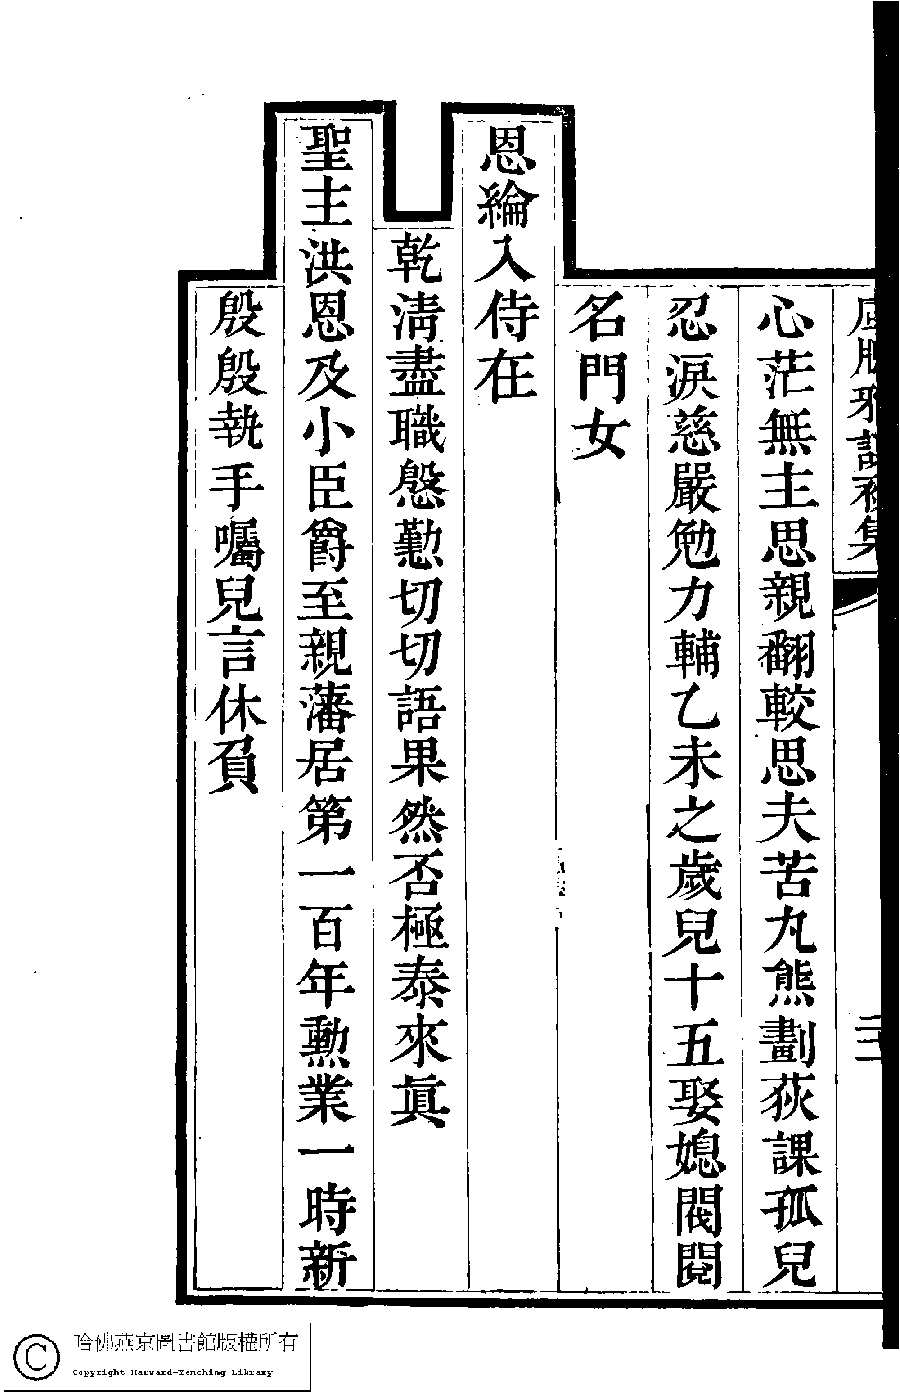 心茫無主思親翻較思夫苦丸熊劃荻課孤兒
忍淚慈嚴勉力輔乙未之歲兒十五娶媳閥閱
名門女
恩綸入侍在
乾淸盡職慇懃切切語果然否極泰來眞
聖主洪恩及小臣爵至親藩居第一百年勲業一時新
殷殷執手囑兒言休負
哈佛燕京圖書館版權所有
Copyright Harvard-Yenching Library